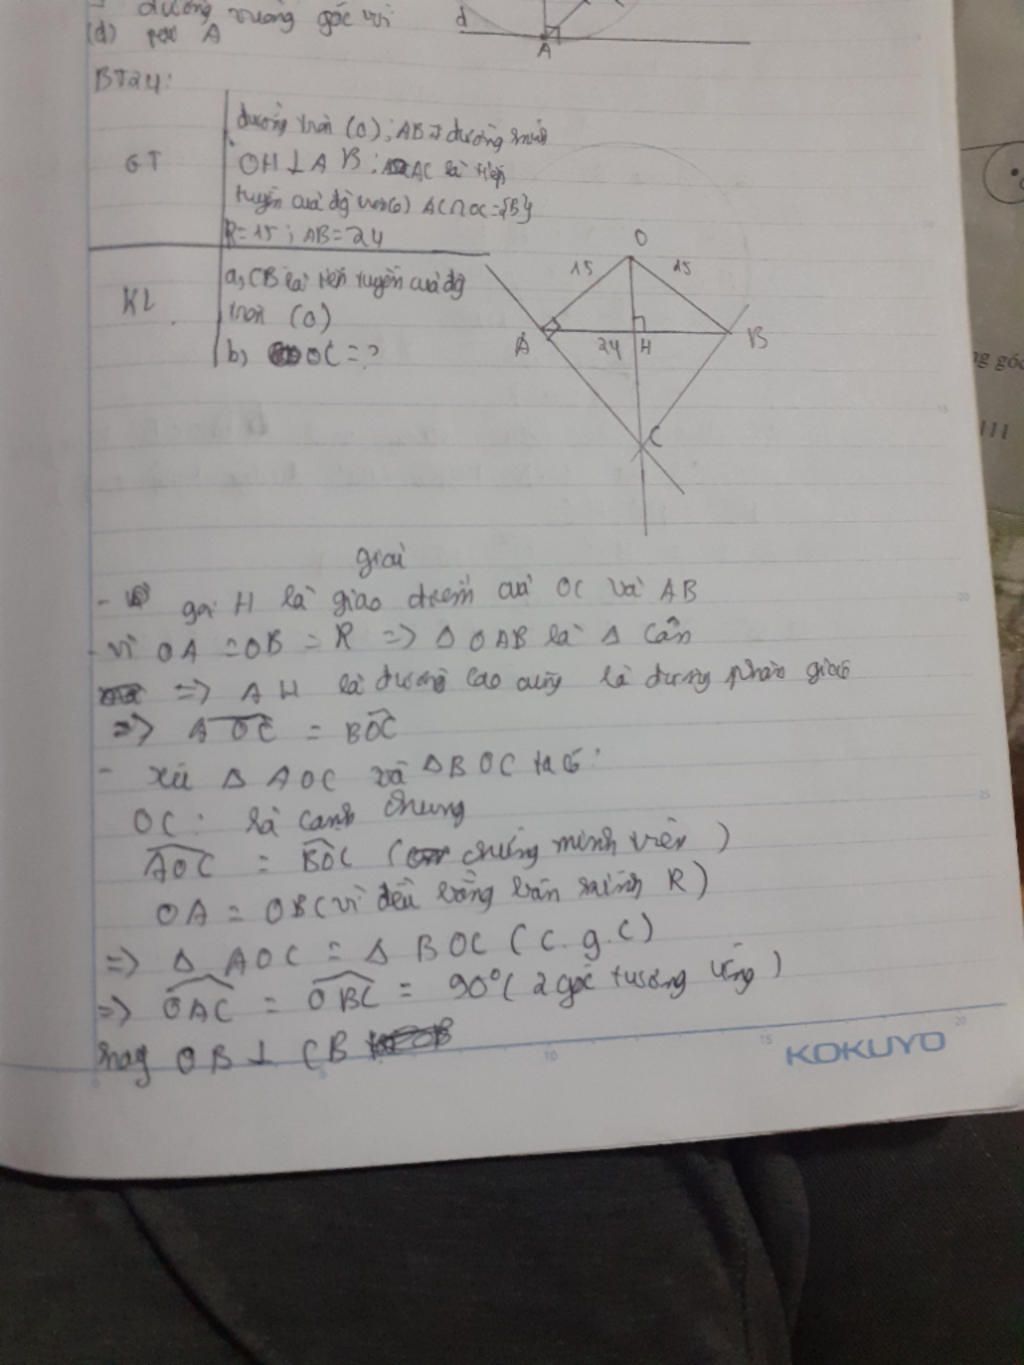 đường vuông góc với
(d) tại A
d
A
BT24:
GT
đường tròn (O); AB đường
OH⊥AB; AC là tiếp
tuyến của đg tròn(O) AC∩OC={B}
R=15; AB=24
KL
a, CB là tiếp tuyến của đg
tròn (O)
b, OC=?
O
15
15
A
24
H
B
C
ng góc
111
giải
- gọi H là giao điểm của OC và AB
- vì OA = OB = R => Δ OAB là Δ cân
=> AH là đường cao cũng là đường phân giác
=> AOC = BOC
- xét Δ AOC và Δ BOC ta có:
OC: là cạnh chung
AOC = BOC (chứng minh trên)
OA = OB (vì đều bằng bán kính R)
=> Δ AOC = Δ BOC (c.g.c)
=> OAC = OBC = 90° (2 góc tương ứng)
hay OB ⊥ CB
5
10
15
20
KOKUYO